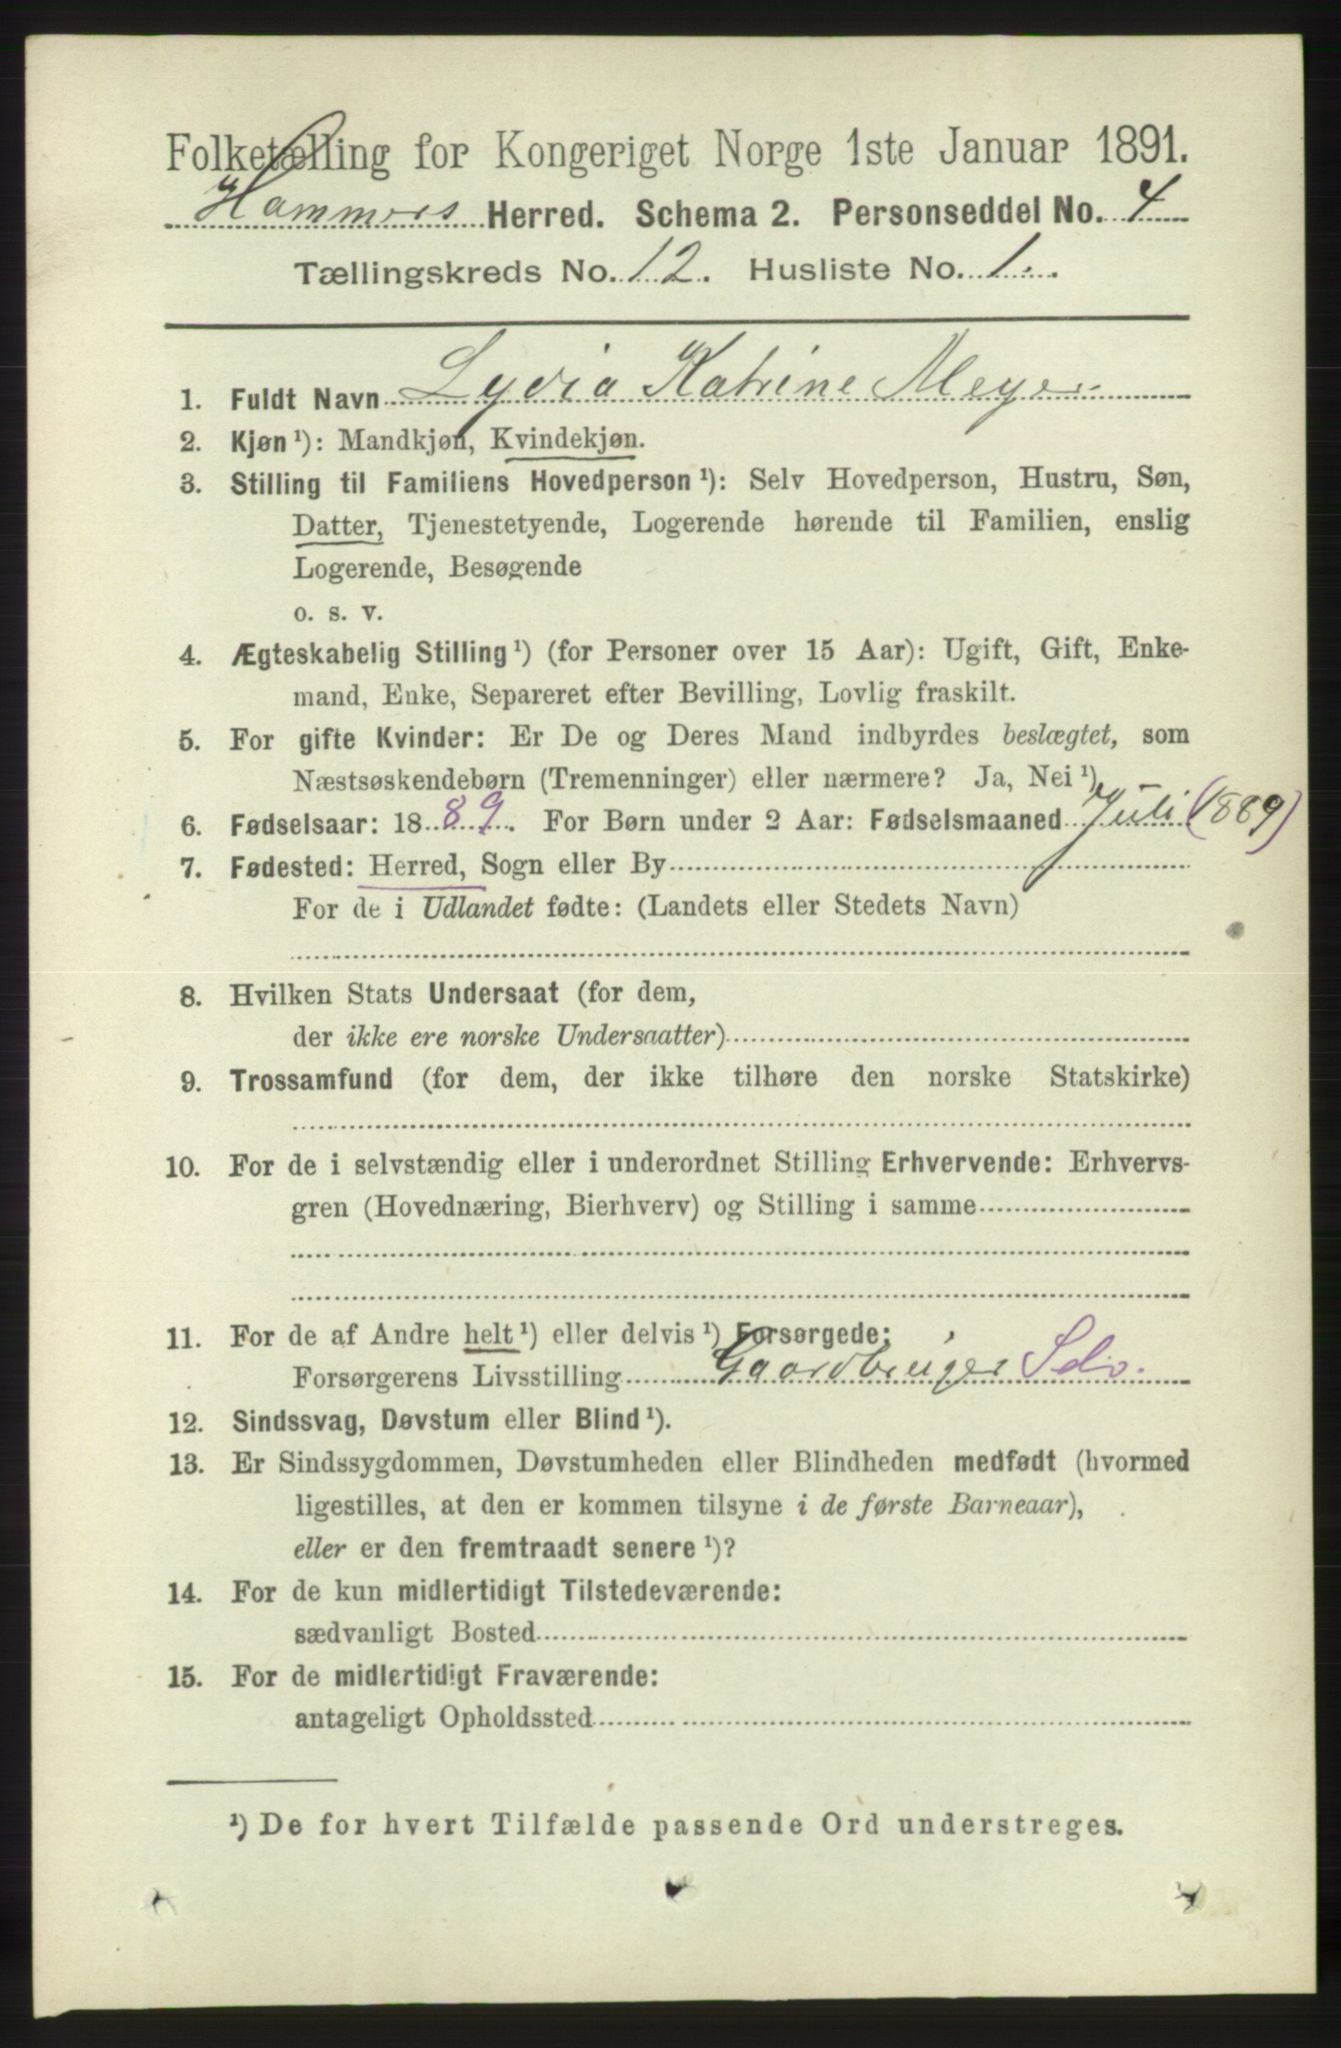 Folketælling for Kongeriget Norge 1ste Januar 1891.
Hammers Herred. Schema 2. Personseddel No. 4
Tællingskreds No. 12. Husliste No. 1.
1. Fuldt Navn Lydia Katrine Meyer
2. Kjøn ¹): Mandkjøn, Kvindekjøn.
3. Stilling til Familiens Hovedperson ¹): Selv Hovedperson, Hustru, Søn,
Datter, Tjenestetyende, Logerende hørende til Familien, enslig
Logerende, Besøgende
o. s. v.
4. Ægteskabelig Stilling ¹) (for Personer over 15 Aar): Ugift, Gift, Enke-
mand, Enke, Separeret efter Bevilling, Lovlig fraskilt.
5. For gifte Kvinder: Er De og Deres Mand indbyrdes beslægtet, som
Næstsøskendebørn (Tremenninger) eller nærmere? Ja, Nei ¹)
6. Fødselsaar: 1889. For Børn under 2 Aar: Fødselsmaaned Juli (1889)
7. Fødested: Herred, Sogn eller By
For de i Udlandet fødte: (Landets eller Stedets Navn)
8. Hvilken Stats Undersaat (for dem,
der ikke ere norske Undersaatter)
9. Trossamfund (for dem, der ikke tilhøre den norske Statskirke)
10. For de i selvstændig eller i underordnet Stilling Erhvervende: Erhvervs-
gren (Hovednæring, Bierhverv) og Stilling i samme
11. For de af Andre helt ¹) eller delvis ¹) Forsørgede:
Forsørgerens Livsstilling Gaardbruger Selv.
12. Sindssvag, Døvstum eller Blind ¹).
13. Er Sindssygdommen, Døvstumheden eller Blindheden medfødt (hvormed
ligestilles, at den er kommen tilsyne i de første Barneaar),
eller er den fremtraadt senere ¹)?
14. For de kun midlertidigt Tilstedeværende:
sædvanligt Bosted
15. For de midlertidigt Fraværende:
antageligt Opholdssted
¹) De for hvert Tilfælde passende Ord understreges.